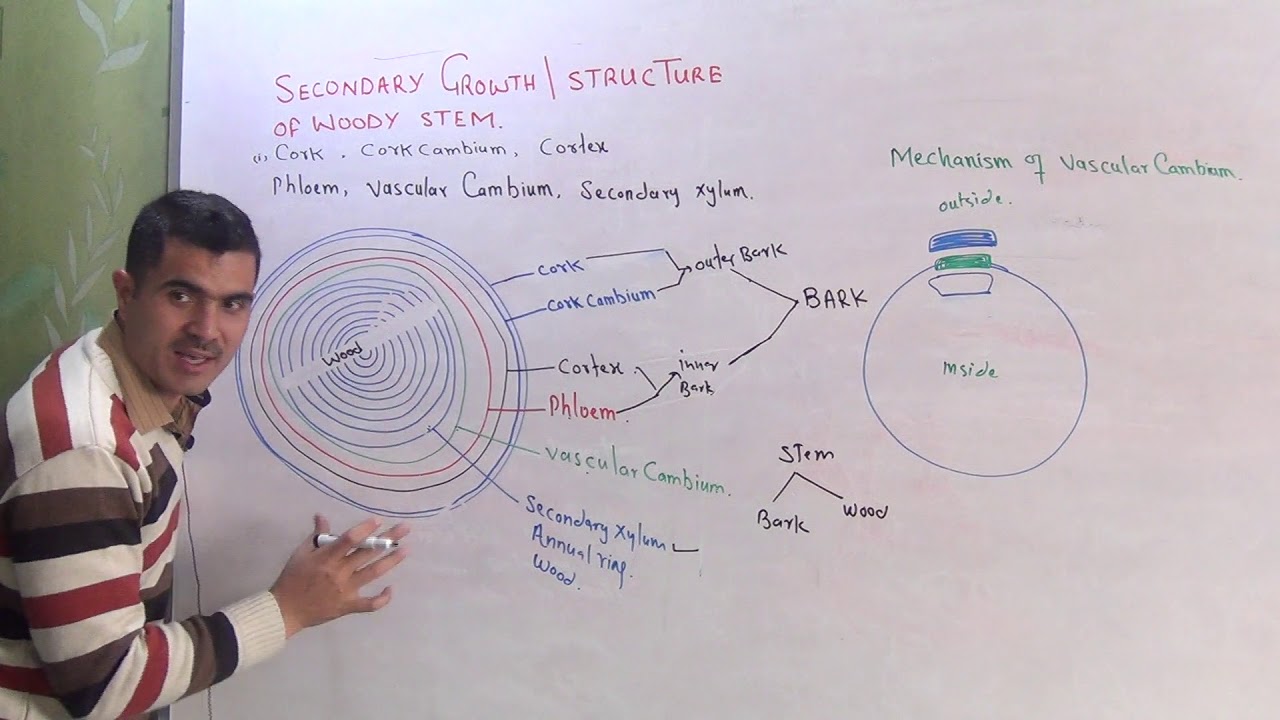 SECONDARY GROWTH / STRUCTURE
OF WOODY STEM.
(i) Cork, Cork Cambium, Cortex
Phloem, Vascular Cambium, Secondary xylum.
Cork
Cork Cambium
outer Bark
BARK
Cortex
Phloem.
inner
Bark
Vascular Cambium.
Secondary xylum
Annual ring.
Wood.
Wood
Mechanism of Vascular Cambium.
outside.
Inside
Stem
Bark
Wood